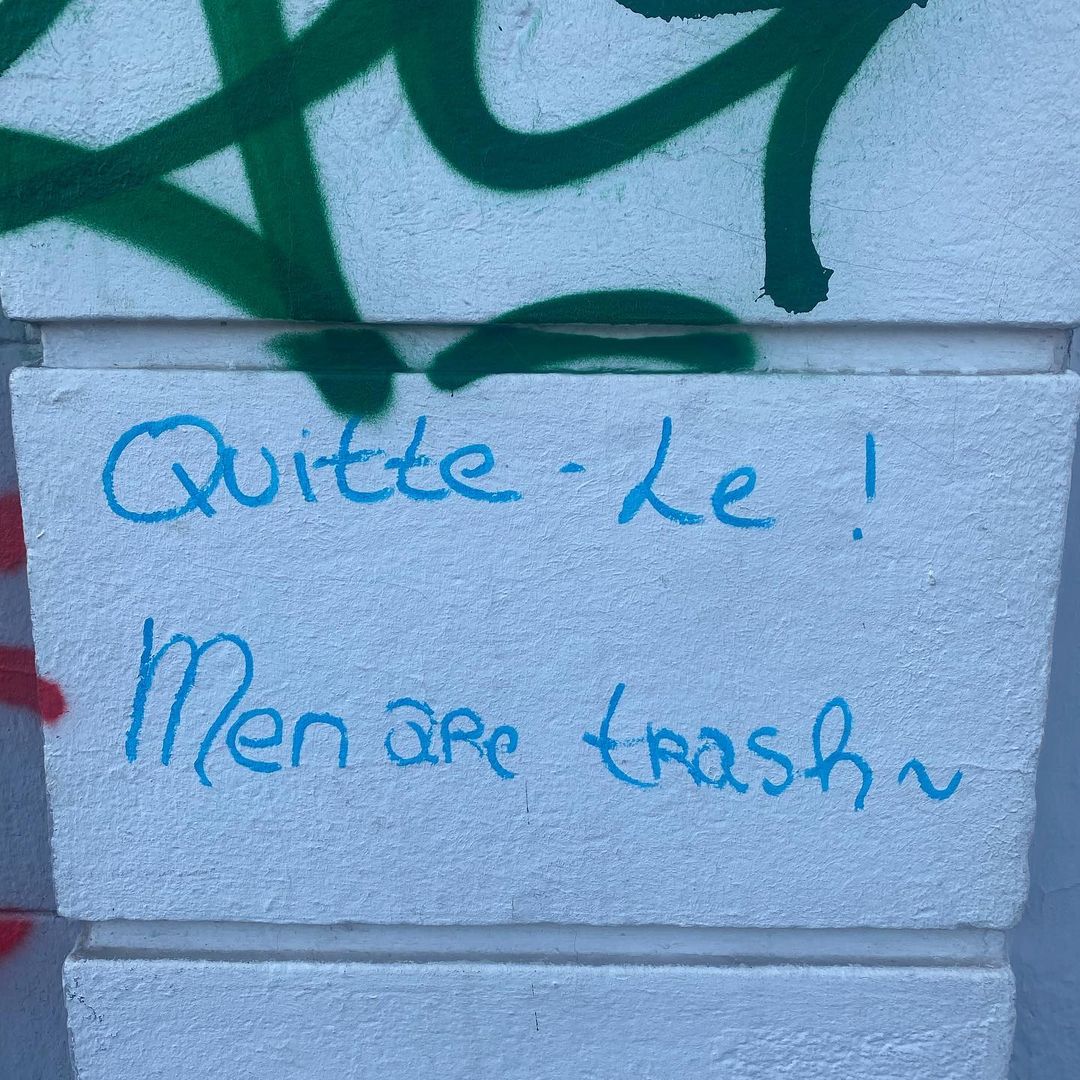 Quitte-Le !
Men are trash~